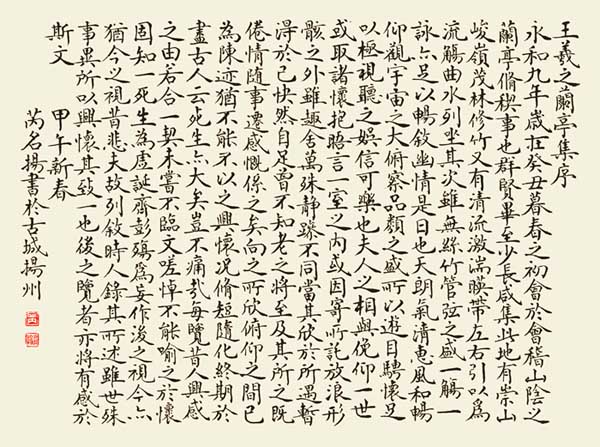 王羲之蘭亭集序
永和九年歲在癸丑暮春之初會於會稽山陰之
蘭亭脩稧事也群賢畢至少長咸集此地有崇山
峻嶺茂林修竹又有清流激湍暎帶左右引以為
流觴曲水列坐其次雖無絲竹管弦之盛一觴一
詠亦足以暢敘幽情是日也天朗氣清惠風和暢
仰觀宇宙之大俯察品類之盛所以遊目騁懷足
以極視聽之娛信可樂也夫人之相與俛仰一世
或取諸懷抱晤言一室之內或因寄所託放浪形
骸之外雖趣舍萬殊靜躁不同當其欣於所遇暫
得於己快然自足曾不知老之將至及其所之既
倦情隨事遷感慨係之矣向之所欣俯仰之間已
為陳迹猶不能不以之興懷況脩短隨化終期於
盡古人云死生亦大矣豈不痛哉每覽昔人興感
之由若合一契未嘗不臨文嗟悼不能喻之於懷
固知一死生為虛誕齊彭殤為妄作後之視今亦
猶今之視昔悲夫故列敘時人錄其所述雖世殊
事異所以興懷其致一也後之覽者亦將有感於
斯文 甲午新春
芮名揚書於古城揚州